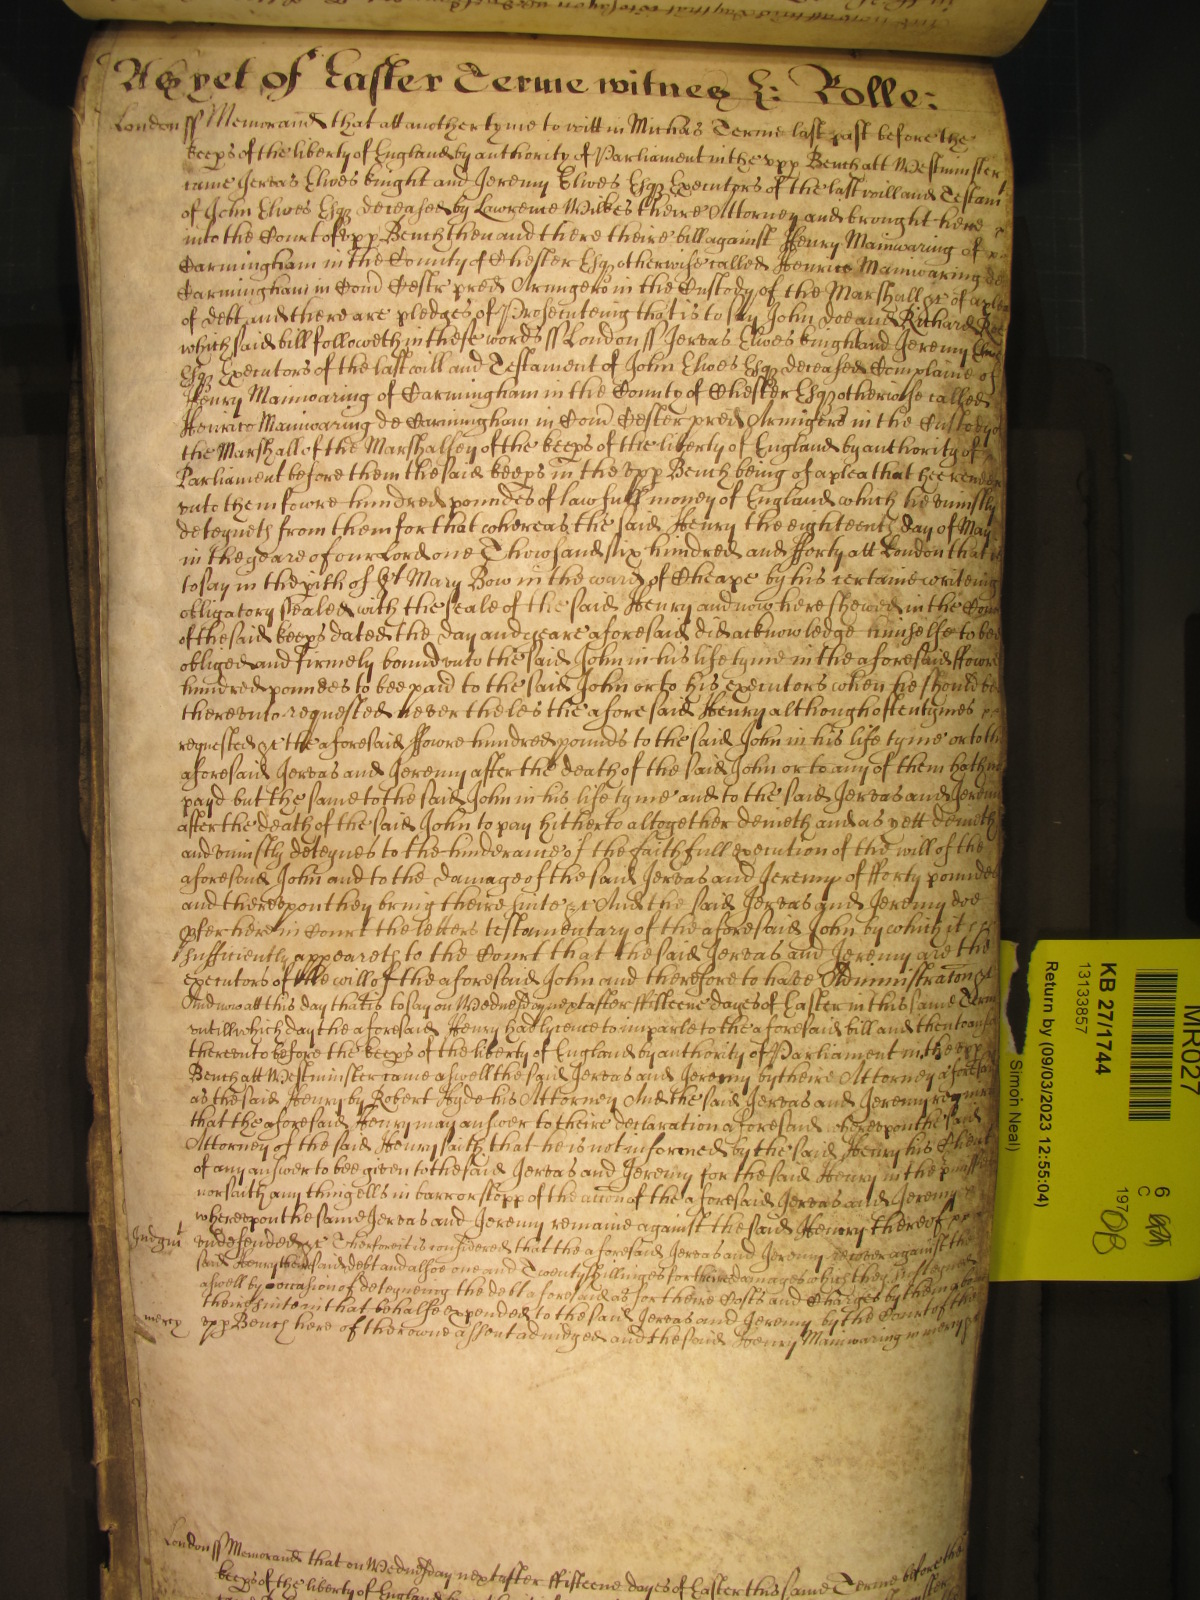 As yet of Easter Terme witnes H: Rolle:
London ss Memorand that att another tyme to witt in Michas Terme last past before the
keeps of the liberty of England by authority of Parliament in the upp Bench att Westminster
came Jervas Elwes knight and Jeremy Elwes Esqz Executors of the last will and Testamt
of John Elwes Esqz deceased by Lawrence Wilkes theire Attorney and brought here
into the Court of upp Bench then and there theire bill against Henry Mainwaring of
Carmingham in the County of Chester Esqz otherwise called Henrico Mainwaring de
Carmingham in Com Cestr pred Armigero in the Custody of the Marshall &c of a plea
of debt and there are pledges of Prosecuteing that is to say John Doe and Richard Roe
which said bill followeth in these words ss London ss Jervas Elwes knight and Jeremy Elwes
Esqz Executors of the last will and Testament of John Elwes Esqz deceased Complaine of
Henry Mainwaring of Carmingham in the County of Chester Esqz otherwise called
Henrico Mainwaring de Carmingham in Com Cester pred Armigero in the Custody of
the Marshall of the Marshalsey of the keeps of the liberty of England by authority of
Parliament before them the said keeps in the upp Bench being of a plea that hee render
unto them fowre hundred poundes of lawfull money of England which he uniustly
deteyneth from them for that whereas the said Henry the eighteenth day of May
in the yeare of our Lord one Thowsand six hundred and fforty att London that is
to say in the pish of St Mary Bow in the ward of Cheape by his certaine writeing
obligatory sealed with the seale of the said Henry and now here shewed in the Court
of the said keeps dated the day and yeare aforesaid did acknowledge himselfe to bee
obliged and firmely bound unto the said John in his life tyme in the aforesaid ffowre
hundred poundes to bee paid to the said John or to his executors when he should be
thereunto requested never theles the aforesaid Henry although oftentymes
requested &c the aforesaid ffowre hundred pounds to the said John in his life tyme or to the
aforesaid Jervas and Jeremy after the death of the said John or to any of them hath not
payd but the same to the said John in his life tyme and to the said Jervas and Jeremy
after the death of the said John to pay hitherto altogether denieth and as yett denieth
and uniustly deteynes to the hinderance of the faithfull execution of the will of the
aforesaid John and to the damage of the said Jervas and Jeremy of fforty poundes
and thereupon they bring theire suite &c And the said Jervas and Jeremy doe
pfer here in Court the letters testamentary of the aforesaid John by which it
sufficiently appeareth to the Court that the said Jervas and Jeremy are the
executors of the will of the aforesaid John and therefore to have Administraton &c
And now att this day that is to say on Wednesday next after ffifteene dayes of Easter in this same Terme
untill which day the aforesaid Henry had lycence to imparle to the aforesaid bill and then to answer
thereunto before the keeps of the liberty of England by authority of Parliament in the upp
Bench att Westminster came aswell the said Jervas and Jeremy by theire Attorney aforesaid
as the said Henry by Robert Hyde his Attorney And the said Jervas and Jeremy require
that the aforesaid Henry may answer to theire declaration aforesaid whereupon the said
Attorney of the said Henry saith that he is not informed by the said Henry his Client
of any answer to bee given to the said Jervas and Jeremy for the said Henry in the pmisses
nor saith any thing ells in barr or stopp of the action of the aforesaid Jervas and Jeremy
whereupon the same Jervas and Jeremy remaine against the said Henry thereof
Judgmt undefended &c Therfore it is considered that the aforesaid Jervas and Jeremy recover against the
said Henry their said debt and alsoe one and Twenty shillinges for their damages which they susteyned
aswell by occasion of deteyneing the debt aforesaid as for theire Costs and Charges by them about
theire suite in that behalfe expended to the said Jervas and Jeremy by the Court of the
mercy upp Bench here of there owne assent adiudged and the said Henry Mainwaring in mercy &c
London ss Memorand that on Wednesday next after ffifteene dayes of Easter this same Terme before the
keeps of the liberty of England
MR027
KB 27/1744
13133857
Return by (09/03/2023 12:55:04)
Simon Neal)
6
C
197